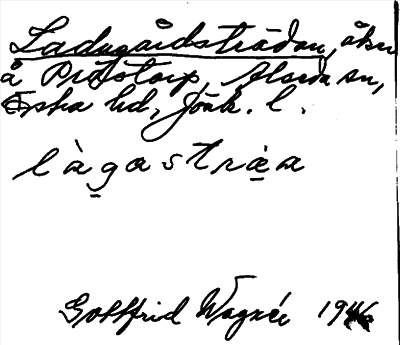 Ladugårdsträdan, åker
å Prästorp, Alseda sn,
Östra hd, Jönk. l.
làgastræa
Gottfrid Wagnér 1946